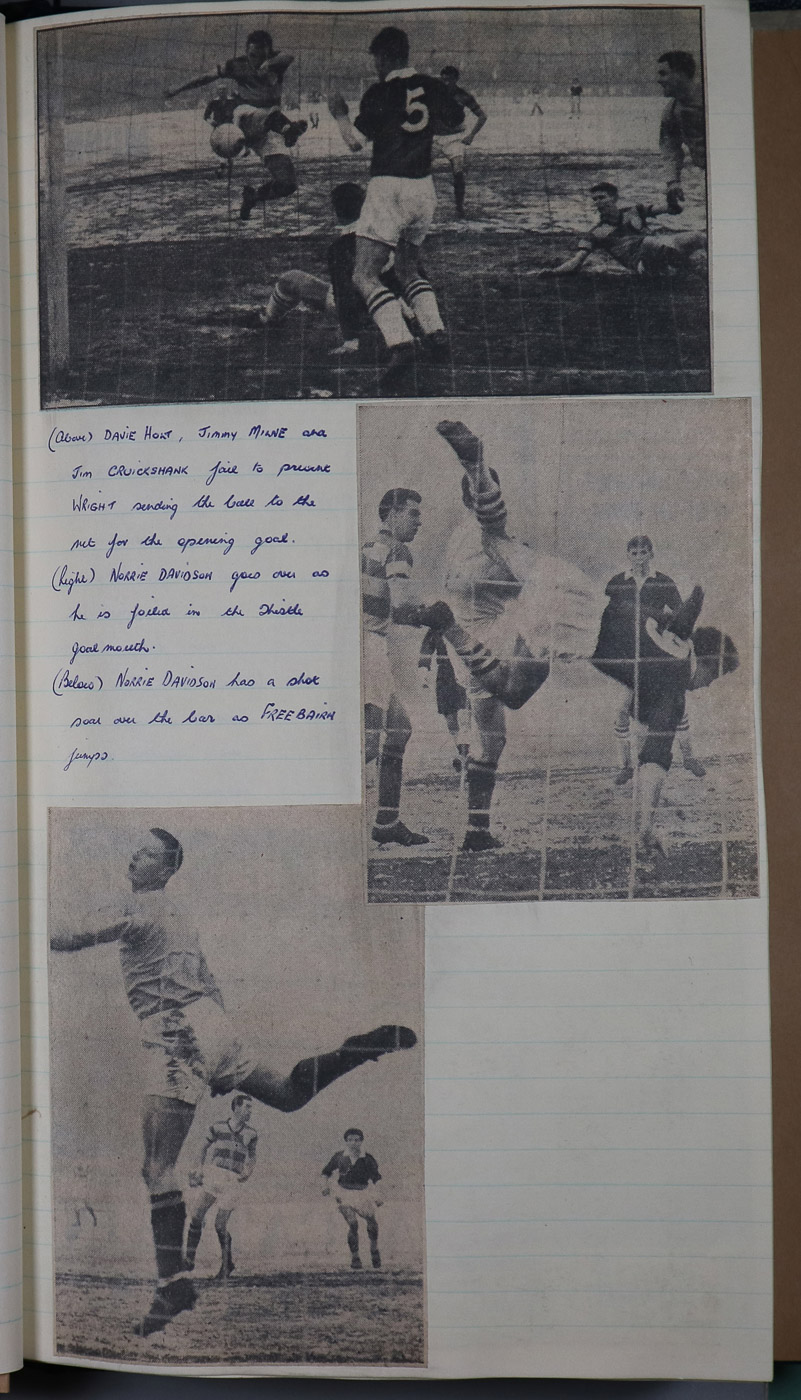 5
(Above) DAVIE HOLT, JIMMY MILNE and
JIM CRUICKSHANK fail to prevent
WRIGHT sending the ball to the
net for the opening goal.
(Right) NORRIE DAVIDSON goes over as
he is foiled in the Thistle
goalmouth.
(Below) NORRIE DAVIDSON has a shot
soar over the bar as FREEBAIRN
jumps.